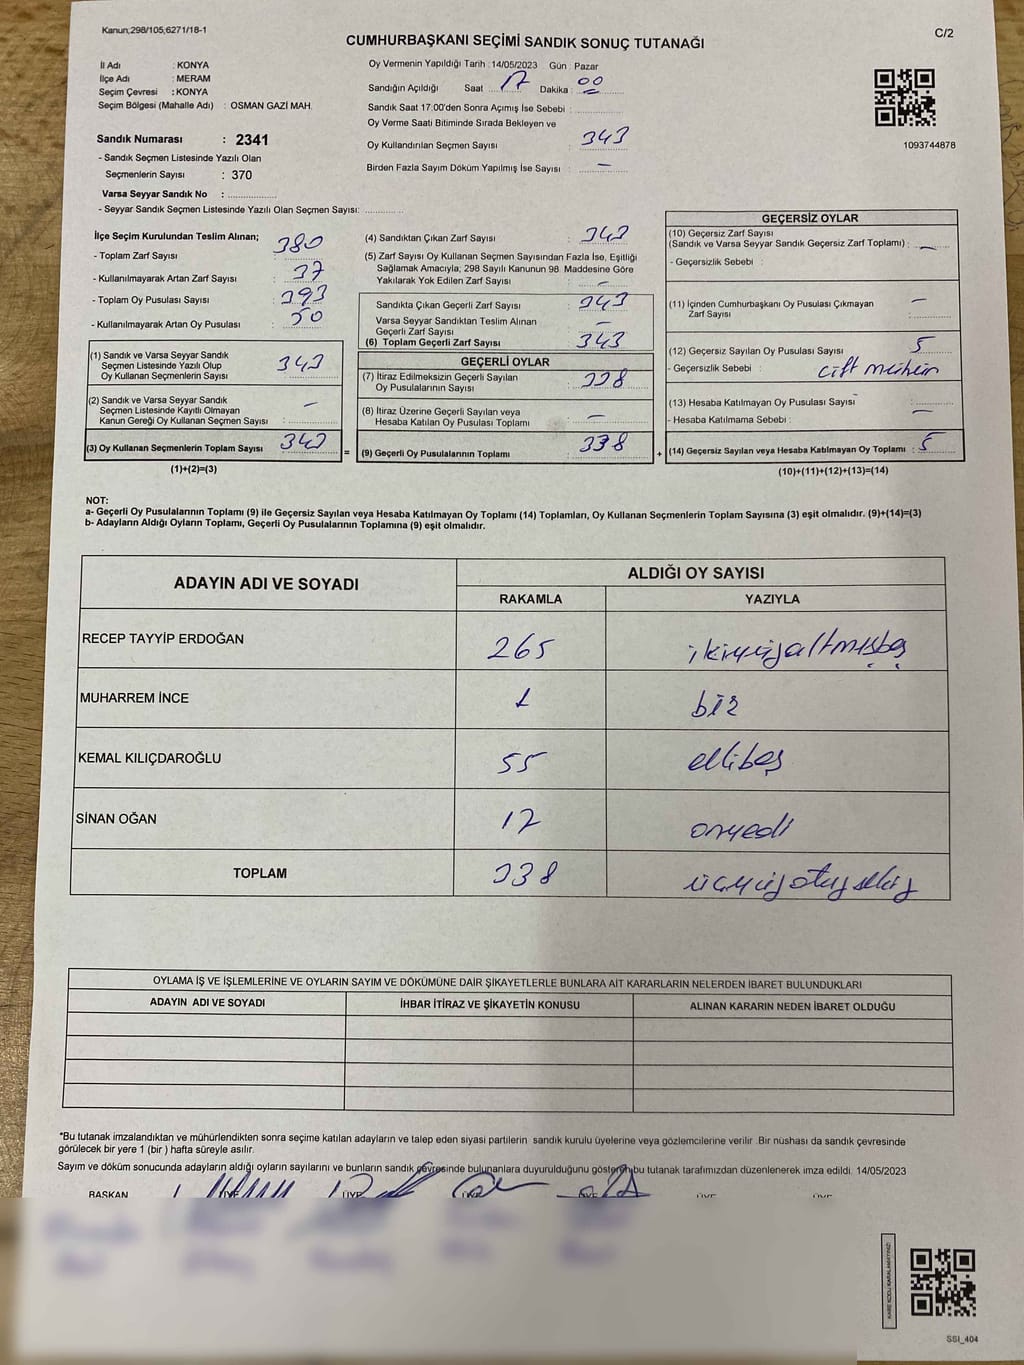 Kanun;298/105;6271/18-1
C/2
CUMHURBAŞKANI SEÇİMİ SANDIK SONUÇ TUTANAĞI
İl Adı : KONYA
İlçe Adı : MERAM
Seçim Çevresi : KONYA
Seçim Bölgesi (Mahalle Adı) : OSMAN GAZİ MAH.
Sandık Numarası : 2341
- Sandık Seçmen Listesinde Yazılı Olan
Seçmenlerin Sayısı : 370
Varsa Seyyar Sandık No :
- Seyyar Sandık Seçmen Listesinde Yazılı Olan Seçmen Sayısı:
Oy Vermenin Yapıldığı Tarih : 14/05/2023 Gün : Pazar
Sandığın Açıldığı Saat : 17 Dakika : 00
Sandık Saat 17:00'den Sonra Açımış İse Sebebi :
Oy Verme Saati Bitiminde Sırada Bekleyen ve
Oy Kullandırılan Seçmen Sayısı : 343
Birden Fazla Sayım Döküm Yapılmış İse Sayısı : –
1093744878
İlçe Seçim Kurulundan Teslim Alınan;
- Toplam Zarf Sayısı : 380
- Kullanılmayarak Artan Zarf Sayısı : 37
- Toplam Oy Pusulası Sayısı : 393
- Kullanılmayarak Artan Oy Pusulası : 50
(1) Sandık ve Varsa Seyyar Sandık
Seçmen Listesinde Yazılı Olup
Oy Kullanan Seçmenlerin Sayısı : 343
(2) Sandık ve Varsa Seyyar Sandık
Seçmen Listesinde Kayıtlı Olmayan
Kanun Gereği Oy Kullanan Seçmen Sayısı : –
(3) Oy Kullanan Seçmenlerin Toplam Sayısı : 343
(1)+(2)=(3)
(4) Sandıktan Çıkan Zarf Sayısı : 343
(5) Zarf Sayısı Oy Kullanan Seçmen Sayısından Fazla İse, Eşitliği
Sağlamak Amacıyla; 298 Sayılı Kanunun 98. Maddesine Göre
Yakılarak Yok Edilen Zarf Sayısı : –
Sandıkta Çıkan Geçerli Zarf Sayısı : 343
Varsa Seyyar Sandıktan Teslim Alınan
Geçerli Zarf Sayısı : –
(6) Toplam Geçerli Zarf Sayısı : 343
GEÇERLİ OYLAR
(7) İtiraz Edilmeksizin Geçerli Sayılan
Oy Pusulalarının Sayısı : 338
(8) İtiraz Üzerine Geçerli Sayılan veya
Hesaba Katılan Oy Pusulası Toplamı : –
= (9) Geçerli Oy Pusulalarının Toplamı : 338
GEÇERSİZ OYLAR
(10) Geçersiz Zarf Sayısı
(Sandık ve Varsa Seyyar Sandık Geçersiz Zarf Toplamı) : –
- Geçersizlik Sebebi :
(11) İçinden Cumhurbaşkanı Oy Pusulası Çıkmayan
Zarf Sayısı : –
(12) Geçersiz Sayılan Oy Pusulası Sayısı : 5
- Geçersizlik Sebebi : çift mühür
(13) Hesaba Katılmayan Oy Pusulası Sayısı : –
- Hesaba Katılmama Sebebi :
+ (14) Geçersiz Sayılan veya Hesaba Katılmayan Oy Toplamı : 5
(10)+(11)+(12)+(13)=(14)
NOT:
a- Geçerli Oy Pusulalarının Toplamı (9) ile Geçersiz Sayılan veya Hesaba Katılmayan Oy Toplamı (14) Toplamları, Oy Kullanan Seçmenlerin Toplam Sayısına (3) eşit olmalıdır. (9)+(14)=(3)
b- Adayların Aldığı Oyların Toplamı, Geçerli Oy Pusulalarının Toplamına (9) eşit olmalıdır.
ADAYIN ADI VE SOYADI ALDIĞI OY SAYISI
RAKAMLA YAZIYLA
RECEP TAYYİP ERDOĞAN 265 ikiyüzaltmışbeş
MUHARREM İNCE 1 bir
KEMAL KILIÇDAROĞLU 55 ellibeş
SİNAN OĞAN 17 onyedi
TOPLAM 338 üçyüzotuzsekiz
OYLAMA İŞ VE İŞLEMLERİNE VE OYLARIN SAYIM VE DÖKÜMÜNE DAİR ŞİKAYETLERLE BUNLARA AİT KARARLARIN NELERDEN İBARET BULUNDUKLARI
ADAYIN ADI VE SOYADI İHBAR İTİRAZ VE ŞİKAYETİN KONUSU ALINAN KARARIN NEDEN İBARET OLDUĞU
*Bu tutanak imzalandıktan ve mühürlendikten sonra seçime katılan adayların ve talep eden siyasi partilerin sandık kurulu üyelerine veya gözlemcilerine verilir .Bir nüshası da sandık çevresinde
görülecek bir yere 1 (bir ) hafta süreyle asılır.
Sayım ve döküm sonucunda adayların aldığı oyların sayılarını ve bunların sandık çevresinde bulunanlara duyurulduğunu gösteren bu tutanak tarafımızdan düzenlenerek imza edildi. 14/05/2023
BAŞKAN ÜYE ÜYE ÜYE ÜYE ÜYE ÜYE
KARE KODU KARALAMAYINIZ!
SSI_404